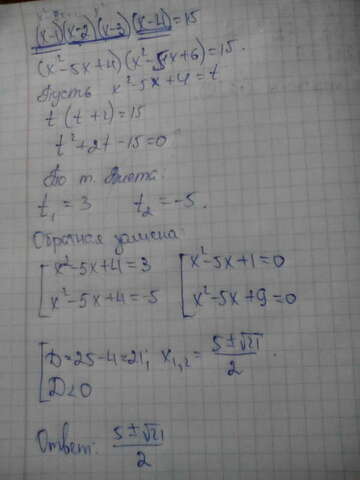 (x-1)(x-2)(x-3)(x-4)=15
(x²-5x+4)(x²-5x+6)=15.
Пусть x²-5x+4=t
t(t+2)=15
t²+2t-15=0
По т. Виета:
t₁=3 t₂=-5.
Обратная замена:
[x²-5x+4=3 [x²-5x+1=0
x²-5x+4=-5 x²-5x+9=0
[D=25-4=21; x₁,₂=(5±√21)/2.
D<0
Ответ: (5±√21)/2